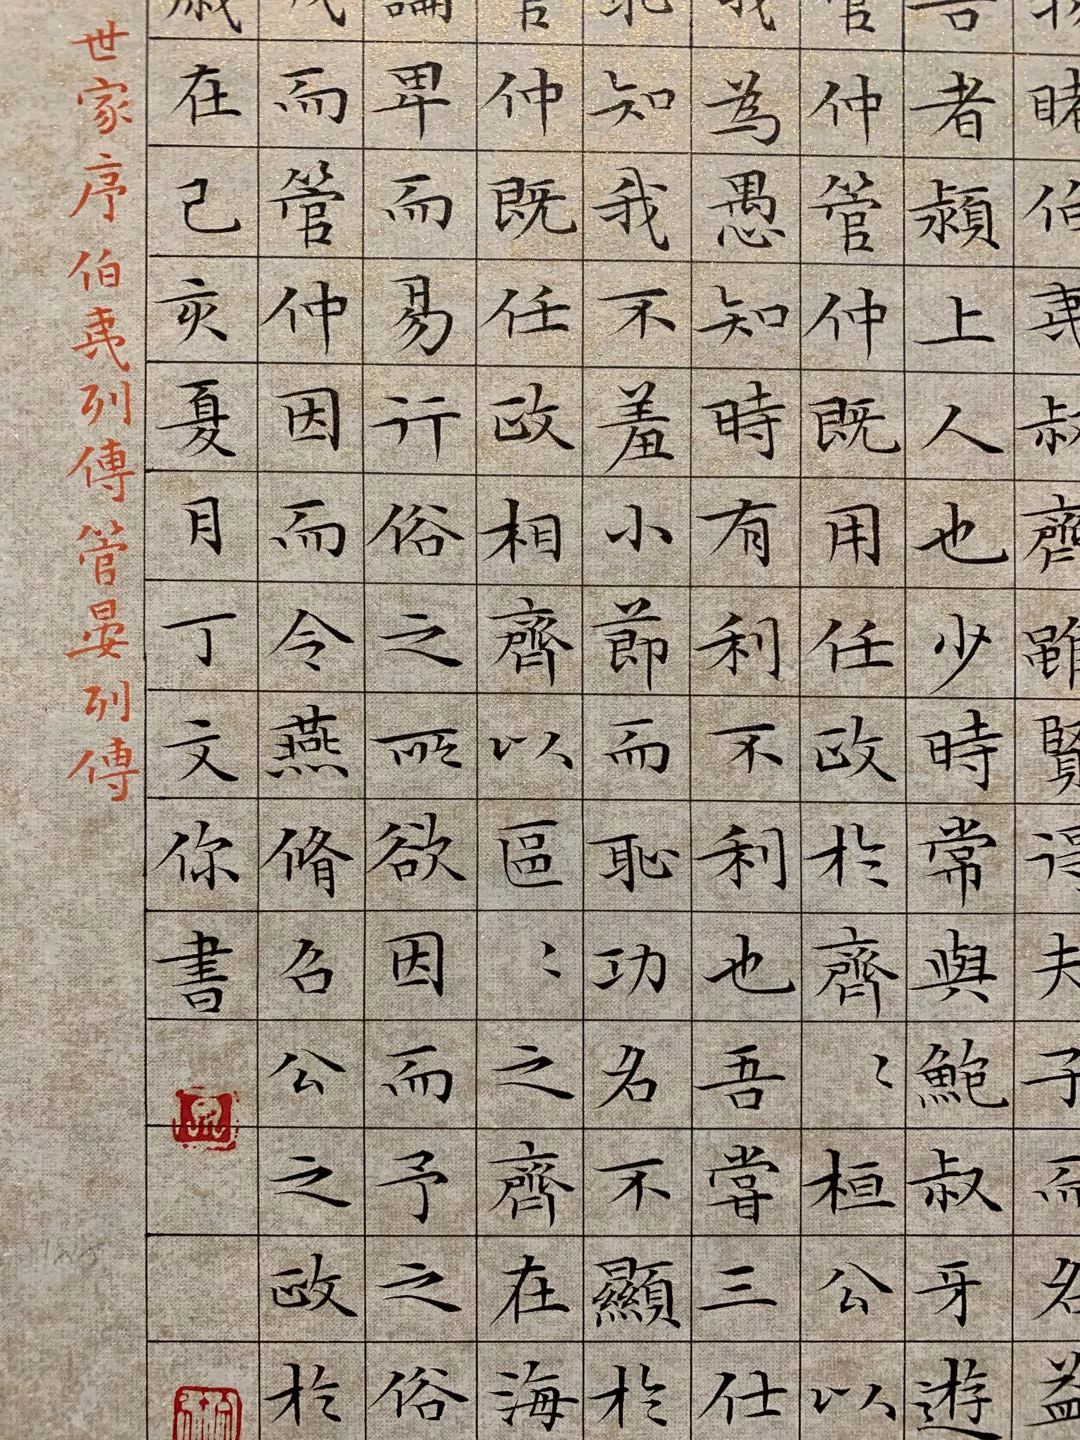 睹伯夷叔齊雖賢得夫子而名益
者潁上人也少時常與鮑叔牙遊
管仲管仲既用任政於齊〻桓公以
我為愚知時有利不利也吾嘗三仕
知我不羞小節而恥功名不顯於
管仲既任政相齊以區〻之齊在海
論卑而易行俗之所欲因而予之俗
而管仲因而令燕脩召公之政於
歲在己亥夏月丁文你書
世家序伯夷列傳管晏列傳